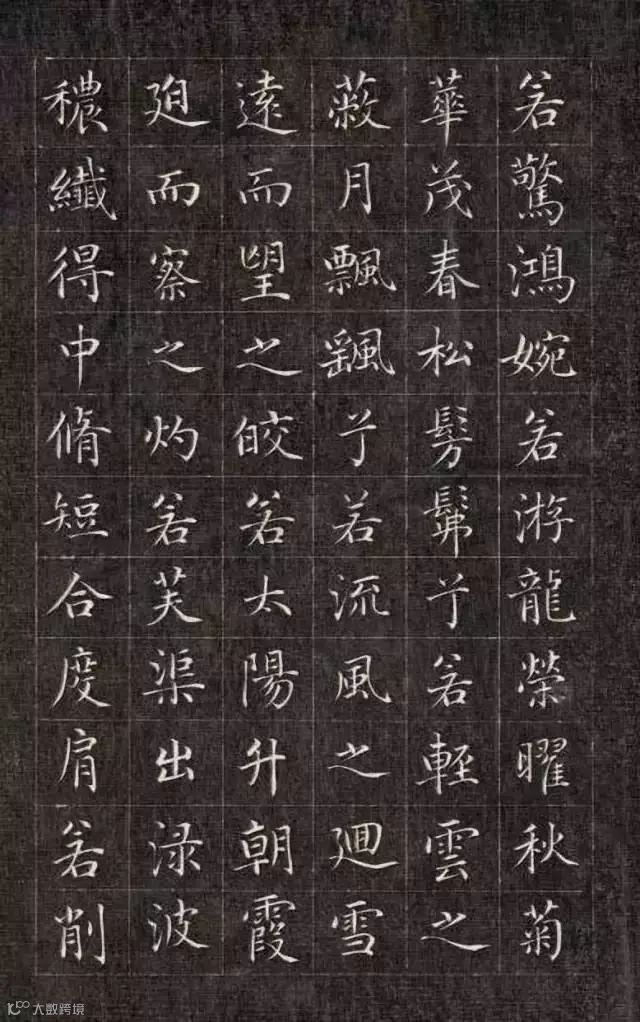 若驚鴻婉若游龍榮曜秋菊
華茂春松髣髴兮若輕雲之
蔽月飄颻兮若流風之廻雪
遠而望之皎若太陽升朝霞
廹而察之灼若芙渠出渌波
穠纖得中脩短合度肩若削
大數跨境